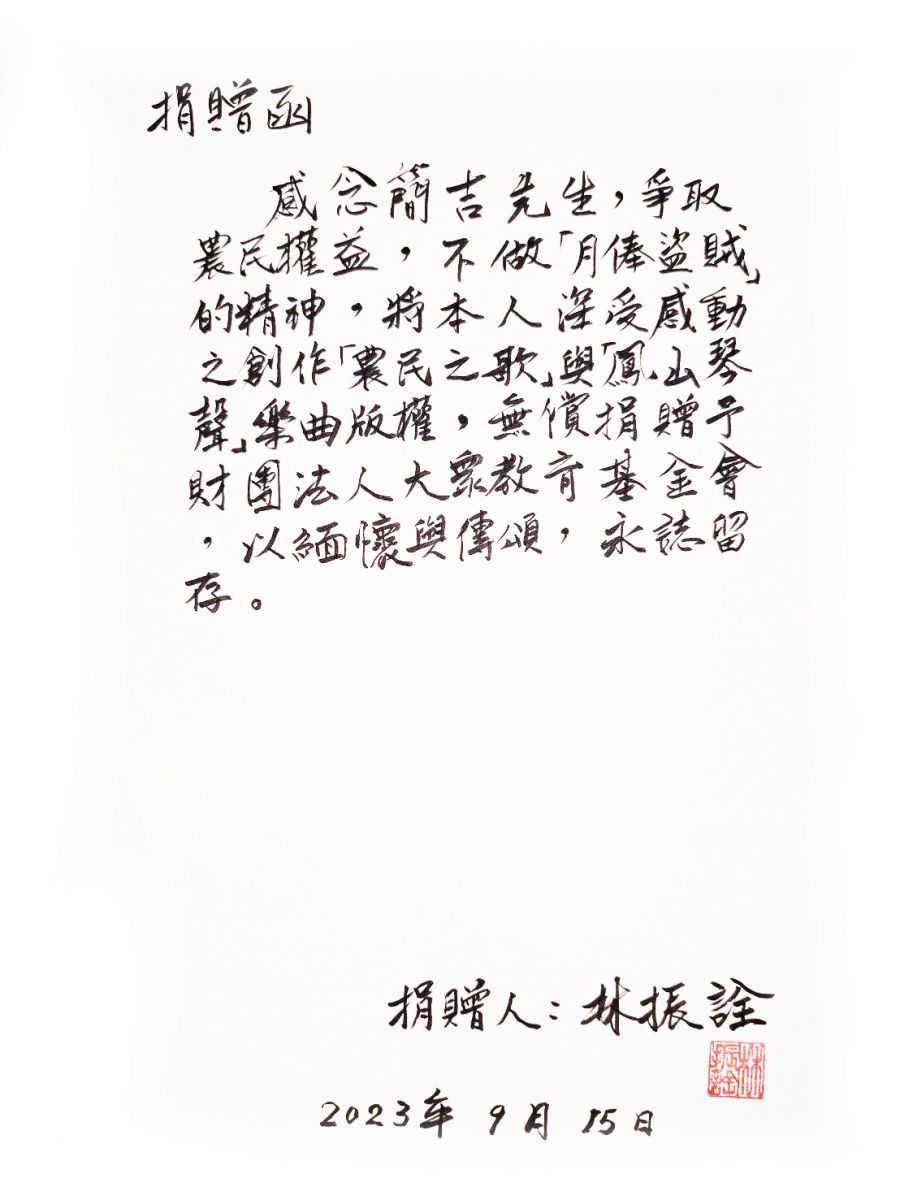 捐贈函
感念簡吉先生，爭取
農民權益，不做「月俸盜賊」
的精神，將本人深受感動
之創作「農民之歌」與「鳳山琴
聲」樂曲版權，無償捐贈予
財團法人大眾教育基金會
，以緬懷與傳頌，永誌留
存。
捐贈人：林振詮
林振詮
2023年 9月 15日